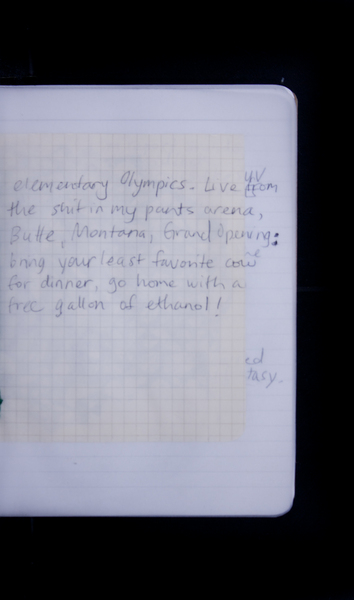 elementary Olympics. Live from
the shit in my pants arena,
Butte, Montana, Grand Opening:
bring your least favorite cow
for dinner, go home with a
free gallon of ethanol!
ed
tasy.